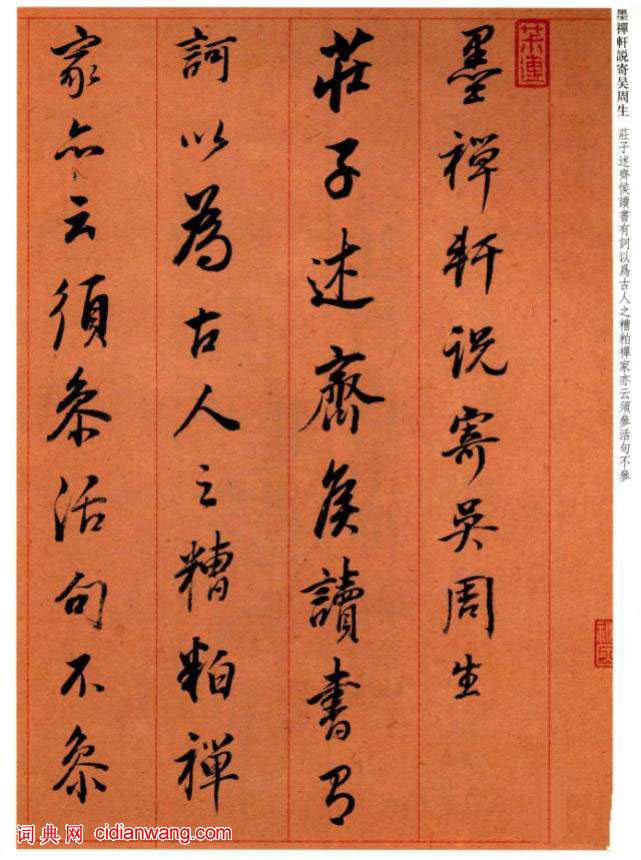 墨禪軒説寄吴周生 莊子述齊侯讀書有訶以爲古人之糟粕禪家亦云須參活句不參
墨禪軒説寄吳周生
莊子述齊侯讀書有
訶以為古人之糟粕禪
家亦云須參活句不參
词典网 cidianwang.com